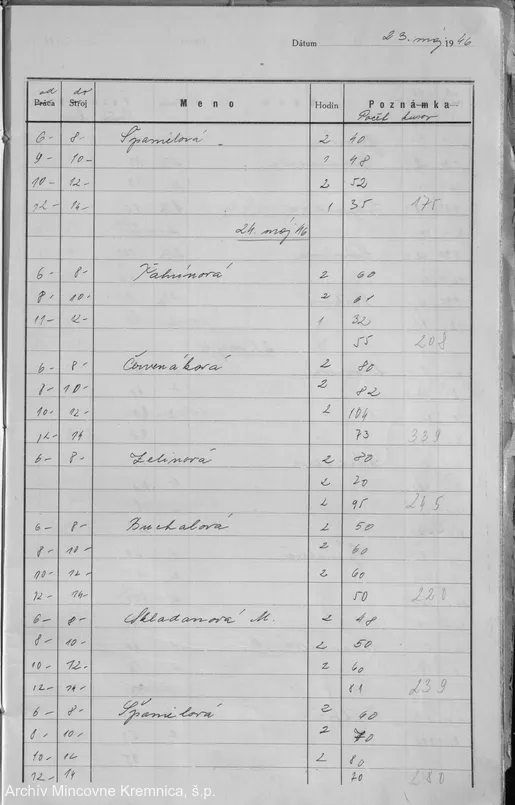 Dátum 23. máj 1946
od do
Práca Stroj Meno Hodín Poznámka
Počet kusov
6- 8- Špamelová 2 40
9- 10- 1 48
10- 12- 2 52
12- 14- 1 35 175
24. máj 46
6- 8- 2 60
8- 10- 2 61
11- 12- 1 32
55 208
6- 8- Červenáková 2 80
8- 10- 2 82
10- 12- 2 104
12- 14 73 339
6- 8- Zelinová 2 80
2 20
2 95 245
6- 8- Buchalová 2 50
8- 10- 2 60
10- 12- 2 60
12- 14- 50 220
6- 8- Skladanová M. 2 48
8- 10- 2 50
10- 12- 2 60
12- 14- 81 239
6- 8- Špamelová 2 60
8- 10- 2 70
10- 12 2 80
12- 14 70 280
Archív Mincovne Kremnica, š.p.